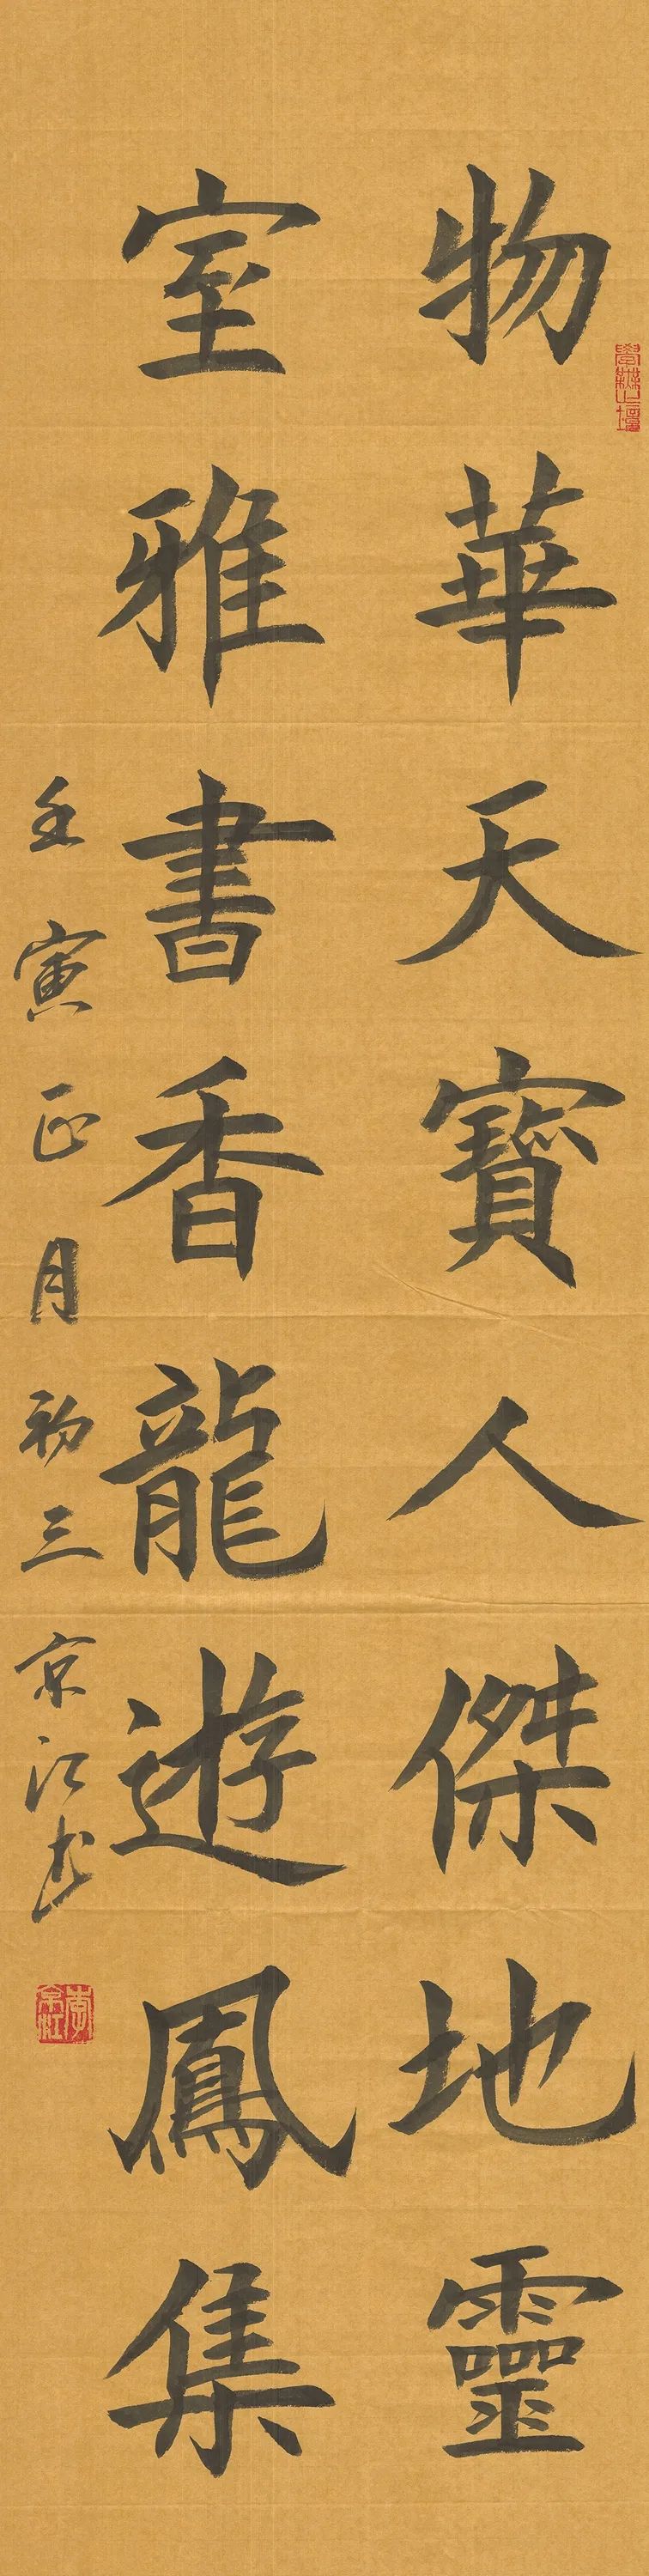 物華天寶人傑地靈
室雅書香龍遊鳳集
壬寅正月初三京江書